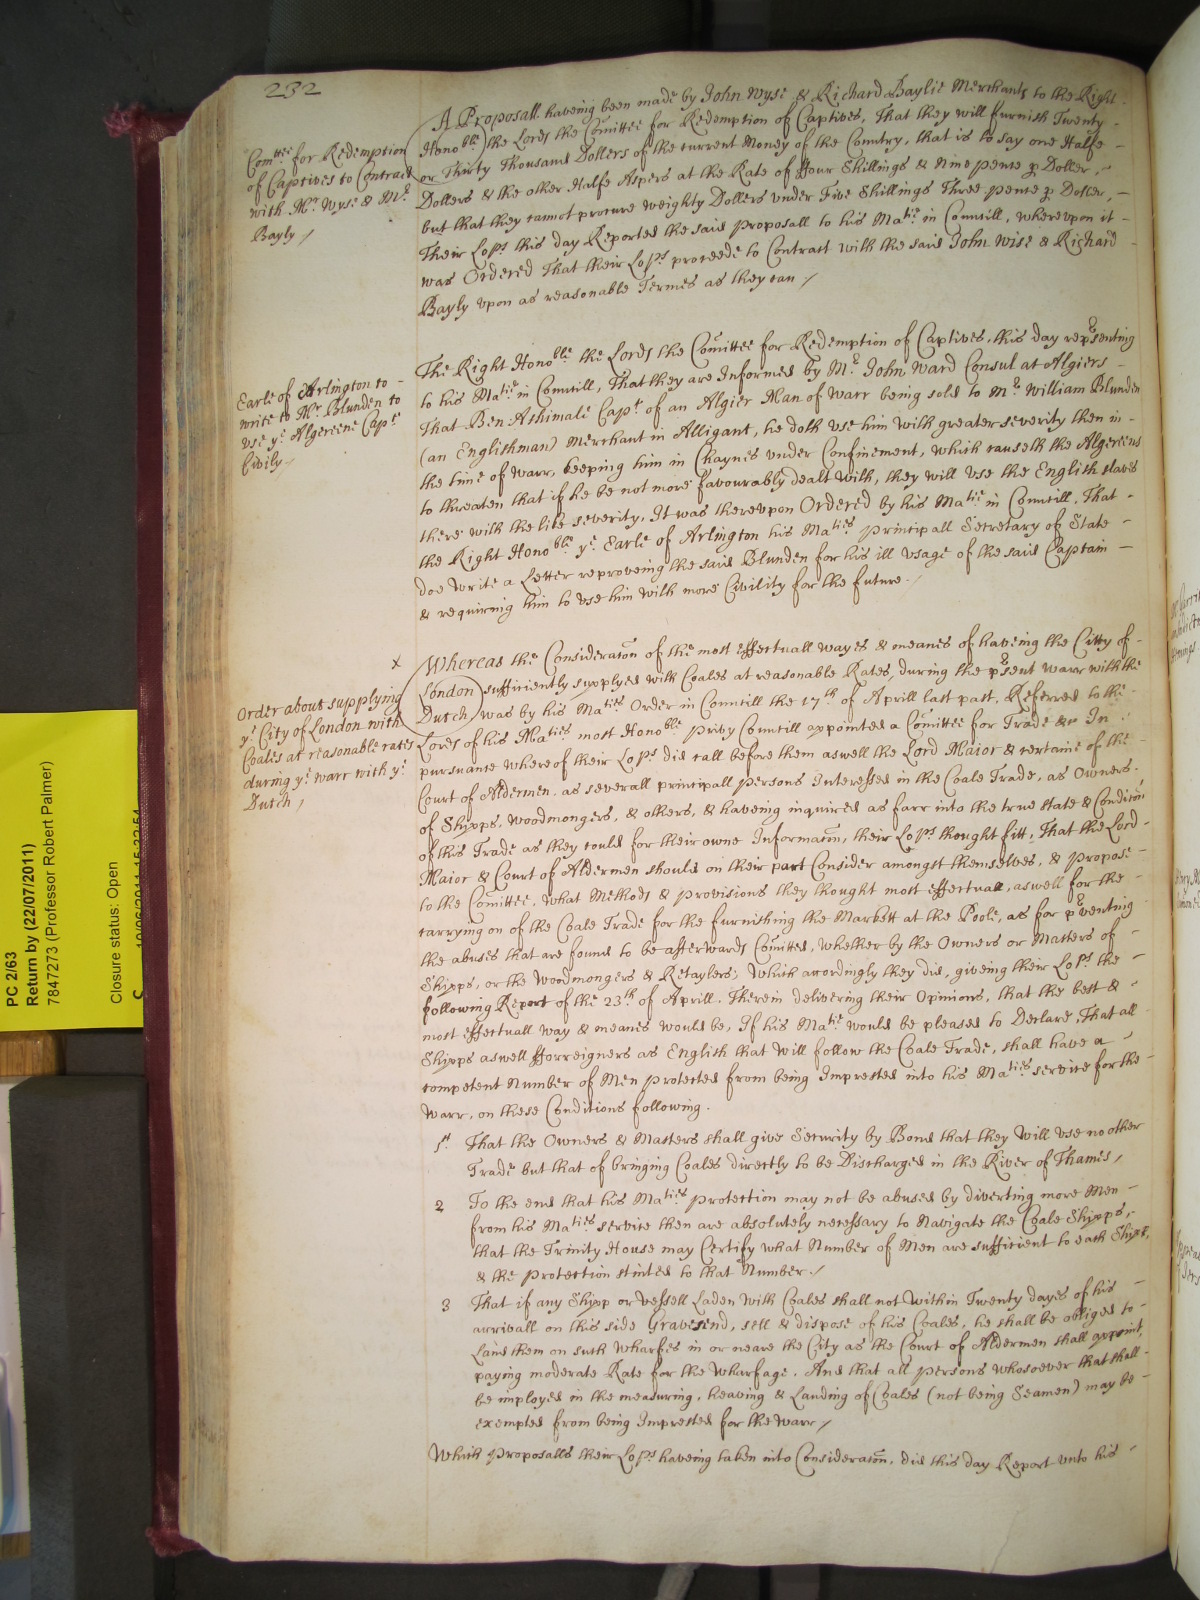 232
Comttee for Redemption
of Captives to Contract
with Mr Wyse & Mr
Bayly /
A Proposall haveing been made by John Wyse & Richard Baylie Merchants to the Right
Honoble the Lords the Comittee for Redemption of Captives, That they will furnish Twenty
or Thirty Thousand Dollers of the current Money of the Country, that is to say one Halfe
Dollers & the other Halfe Aspers at the Rate of ffour Shillings & Nine pence p Doller,
but that they cannot procure weighty Dollers under Five Shillings Three pence p Doller,
Their Lopps this day Reported the said Proposall to his Matie in Councill, whereupon it
was Ordered That their Lopps proceede to Contract with the said John Wise & Richard
Bayly upon as reasonable Termes as they can /
Earle of Arlington to
write to Mr Blunden to
use ye Algereene Capt
Civily
The Right Honoble the Lords the Comittee for Redemption of Captives, this day repsenting
to his Matie in Councill, That they are Informed by Mr John Ward Consul at Algiers
That Ben Ashimale Capt of an Algier Man of Warr being sold to Mr William Blunden
(an Englishman) Merchant in Alligant, he doth use him with greater severity then in
the time of warr, keeping him in Chaynes under Confinement, which causeth the Algereens
to threaten that if he be not more favourably dealt with, they will use the English slaves
there with the like severity, It was thereupon Ordered by his Matie in Councill, That
the Right Honoble ye Earle of Arlington his Maties Principall Secretary of State
doe write a Letter reproveing the said Blunden for his ill usage of the said Captain
& requiring him to use him with more Civility for the future /
x
Order about supplying
ye City of London with
Coales at reasonable rates
during ye warr with ye
Dutch /
Whereas the Consideracon of the most effectuall wayes & meanes of haveing the Citty of
London sufficiently supplyed with Coales at reasonable Rates, during the psent warr with the
Dutch was by his Maties Order in Councill the 17th of Aprill last past, Referred to the
Lords of his Maties most Honoble Privy Councill appointed a Comittee for Trade &c In
pursuance whereof their Lopps did call before them aswell the Lord Maior & certaine of the
Court of Aldermen, as severall principall persons Interessed in the Coale Trade, as Owners
of Shipps, Woodmongers, & others, & haveing inquired as farr into the true state & Condicon
of this Trade as they could for their owne Informacon, their Lopps thought fitt, That the Lord
Maior & Court of Aldermen should on their part Consider amongst themselves, & propose
to the Comittee, what Methods & provisions they thought most effectuall, aswell for the
carrying on of the Coale Trade for the furnishing the Markett at the Poole, as for pventing
the abuses that are found to be afterwards Comitted, whether by the Owners or Masters of
Shipps, or the Woodmongers & Retaylers; which accordingly they did, giveing their Lopps the
following Report of the 23th of Aprill. Therein delivering their Opinions, that the best &
most effectuall way & meanes would be, If his Matie would be pleased to Declare, That all
Shipps aswell fforreigners as English that will follow the Coale Trade, shall have a
competent Number of Men protected from being Imprested into his Maties service for the
Warr, on these Conditions following.
1st That the Owners & Masters shall give Security by Bond that they will use no other
Trade but that of bringing Coales directly to be Discharged in the River of Thames /
2 To the end that his Maties Protection may not be abused by diverting more Men
from his Maties service then are absolutely necessary to Navigate the Coale Shipps,
that the Trinity House may Certify what Number of Men are sufficient to each Shipp,
& the Protection stinted to that Number /
3 That if any Shipp or vessell Laden with Coales shall not within Twenty dayes of his
arrivall on this side Gravesend, sell & dispose of his Coales, he shall be obliged to
Land them on such Wharfes in or neare the City as the Court of Aldermen shall appoint,
paying moderate Rate for the Wharfage. And that all persons whosoever that shall
be imployed in the measuring, heaving & Landing of Coales (not being Seamen) may be
exempted from being Imprested for the Warr /
Which Proposalls their Lopps haveing taken into Consideracon, did this day Report unto his
PC 2/63
Return by (22/07/2011)
7847273 (Professor Robert Palmer)
Closure status: Open